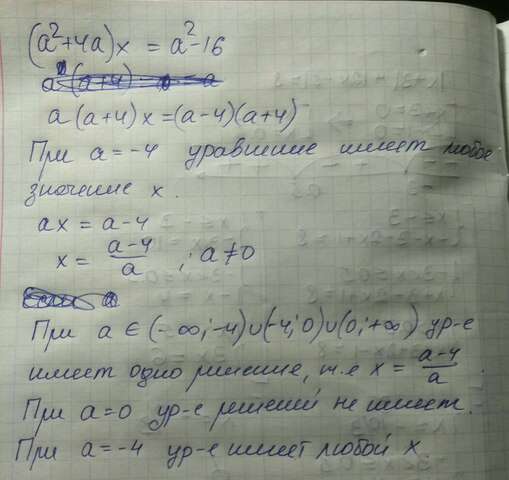 (a²+4a)x = a²-16
a(a+4)x=(a-4)(a+4)
При a=-4 уравнение имеет любое
значение x.
ax = a-4
x = (a-4)/a ; a≠0
При a∈(-∞;-4)∪(-4;0)∪(0;+∞) ур-е
имеет одно решение, т.е x = (a-4)/a.
При a=0 ур-е решений не имеет.
При a=-4 ур-е имеет любой x